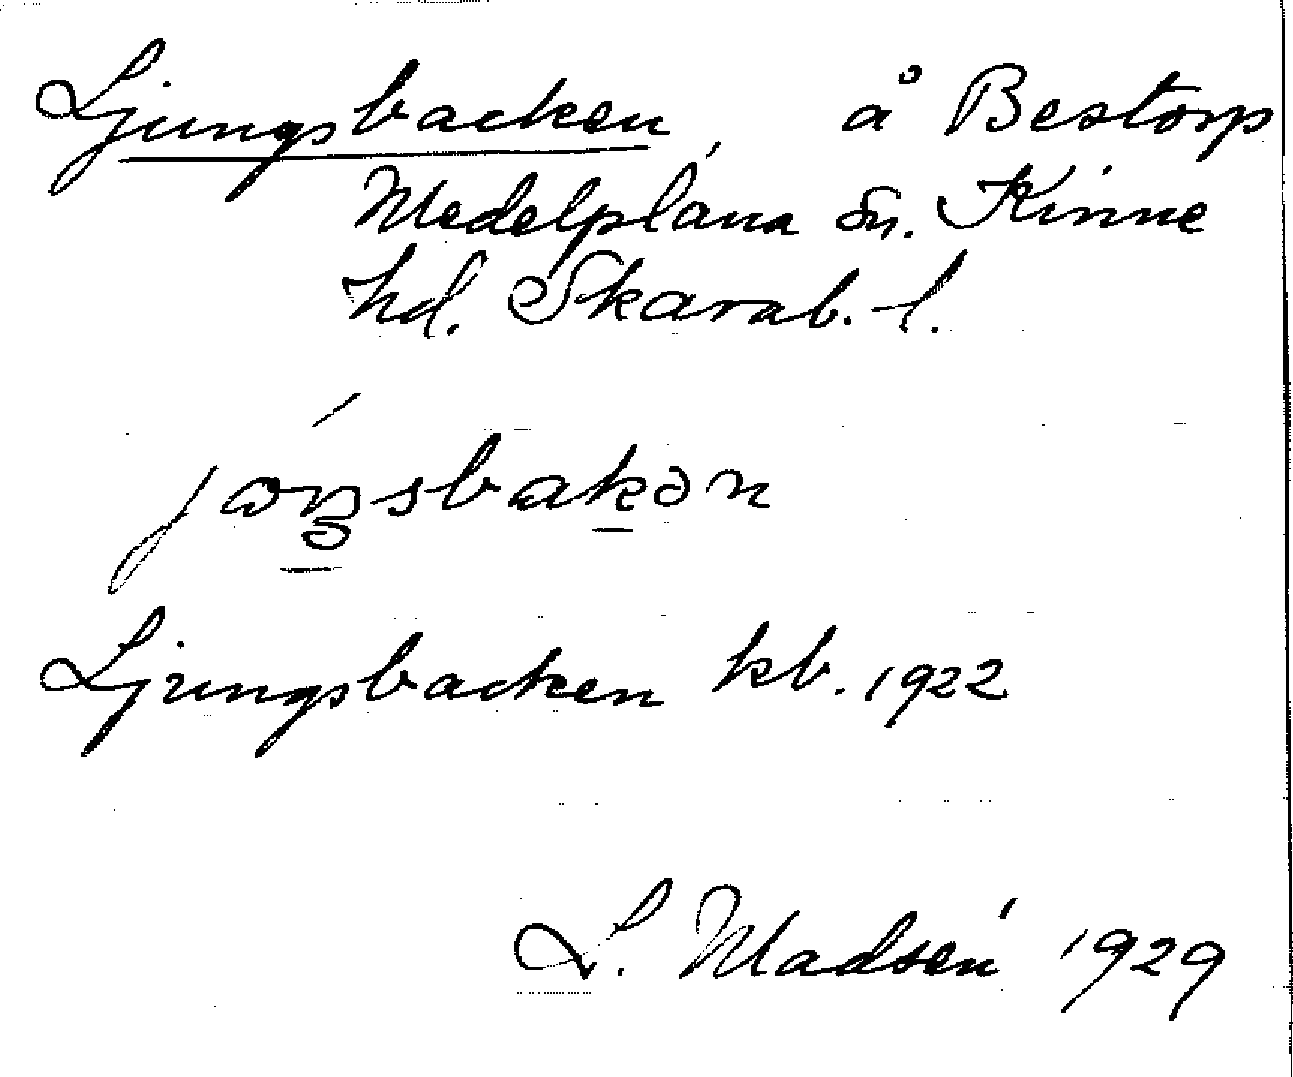 Ljungsbacken å Bestorp
Medelplana Sn. Kinne
hd. Skarab. l.
Ljungsbacken kb. 1922
L. Madsén 1929